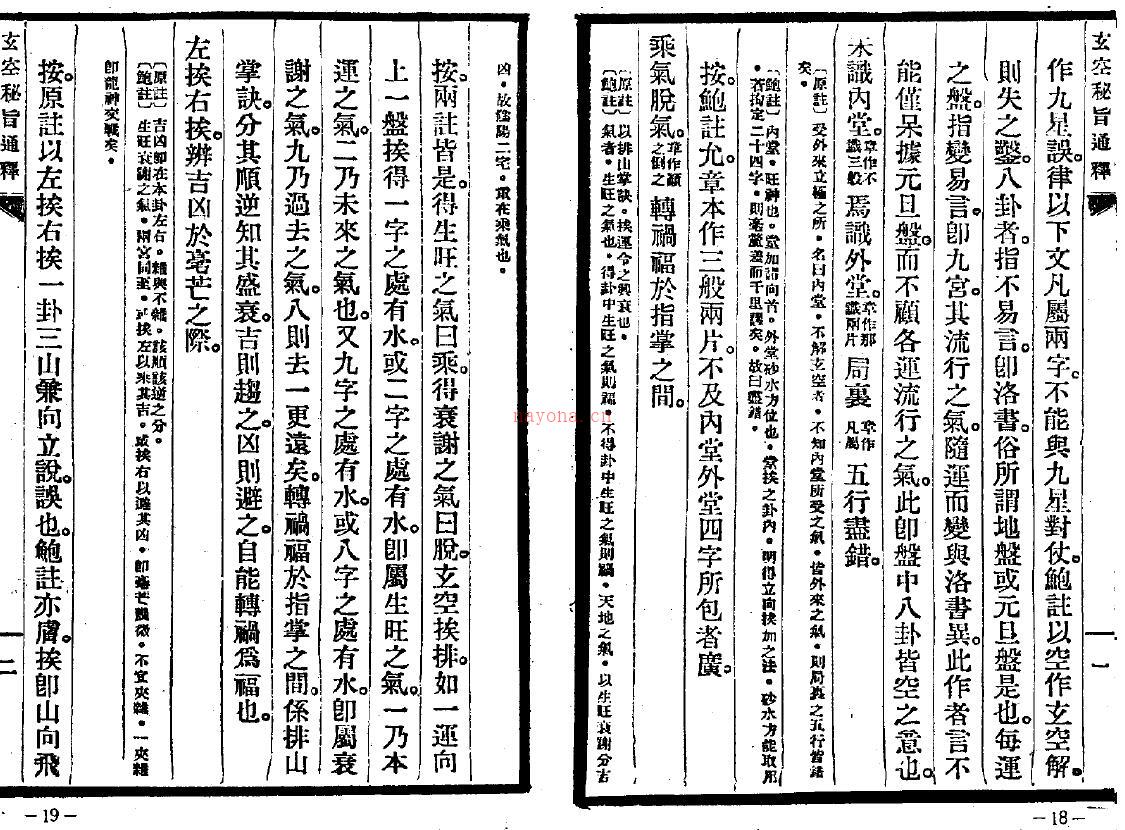 玄空秘旨通釋
一一
作九星誤。律以下文凡屬兩字。不能與九星對仗。鮑註以空作玄空解。
則失之鑿。八卦者。指不易言。卽洛書。俗所謂地盤或元旦盤是也。每運
之盤。指變易言。卽九宮。其流行之氣。隨運而變。與洛書異。此作者言不
能僅呆據元旦盤。而不顧各運流行之氣。此卽盤中八卦皆空之意也。
未識內堂。章作不識三般焉識外堂。章作那識兩片局裏章作凡屬五行盡錯。
〔原註〕受外來立極之所。名曰內堂。不解玄空者。不知內堂所受之氣。皆外來之氣。則局裏之五行皆錯
矣。
〔鮑註〕內堂。旺神也。當加諸向首。外堂砂水方位也。當挨之卦內。明得立向挨加之法。砂水方能取用
。若拘定二十四字。則毫釐差而千里謬矣。故曰盡錯。
按。鮑註允。章本作三般兩片。不及內堂外堂四字所包者廣。
乘氣脫氣。章作顧之倒之轉禍福於指掌之間。
〔原註〕以排山掌訣。挨運令之興衰也。
〔鮑註〕氣者。生旺之氣也。得卦中生旺之氣則福。不得卦中生旺之氣則禍。天地之氣。以生旺衰謝分吉
—18—
凶。故陰陽二宅。重在乘氣也。
按。兩註皆是。得生旺之氣曰乘。得衰謝之氣曰脫。玄空挨排。如一運向
上一盤挨得一字之處有水。或二字之處有水。卽屬生旺之氣。一乃本
運之氣。二乃未來之氣也。又九字之處有水。或八字之處有水。卽屬衰
謝之氣。九乃過去之氣。八則去一更遠矣。轉禍福於指掌之間。係排山
掌訣。分其順逆。知其盛衰。吉則趨之。凶則避之。自能轉禍爲福也。
左挨右挨。辨吉凶於毫芒之際。
〔原註〕吉凶卽在本卦左右。雜與不雜。該順該逆之分。
〔鮑註〕生旺衰謝之氣。兩宮同至。或挨左以乘其吉。或挨右以避其凶。卽毫芒微。不宜夾雜。一夾雜
卽龍神交戰矣。
按。原註以左挨右挨一卦三山兼向立說。誤也。鮑註亦膚。挨卽山向飛
玄空秘旨通釋
一二
—19—
nayona.cn